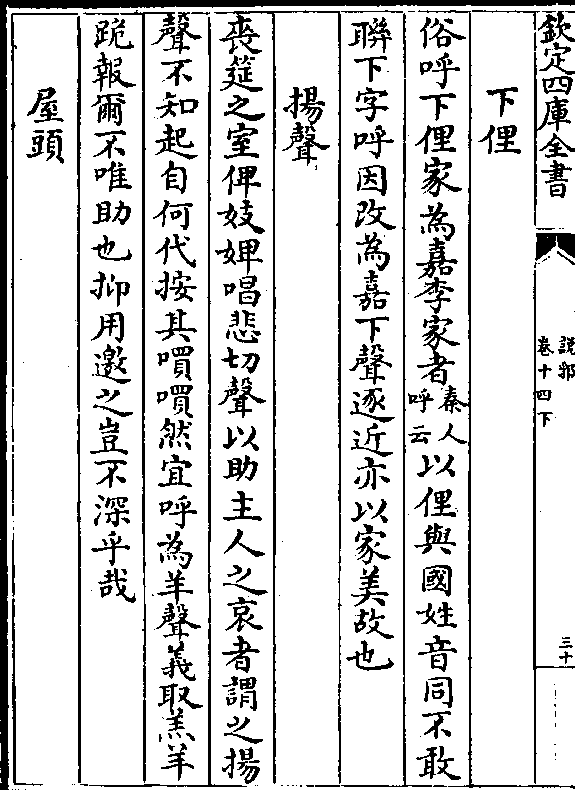 欽定四庫全書
說郛
卷十四下
三十
下俚
俗呼下俚家為嘉李家者秦人呼云以俚與國姓音同不敢
聯下字呼因改為嘉下聲逐近亦以家美故也
揚聲
喪筵之室俾妓婢唱悲切聲以助主人之哀者謂之揚
聲不知起自何代按其嘳嘳然宜呼為羊聲義取羔羊
跪報爾不唯助也抑用邀之豈不深乎哉
屋頭